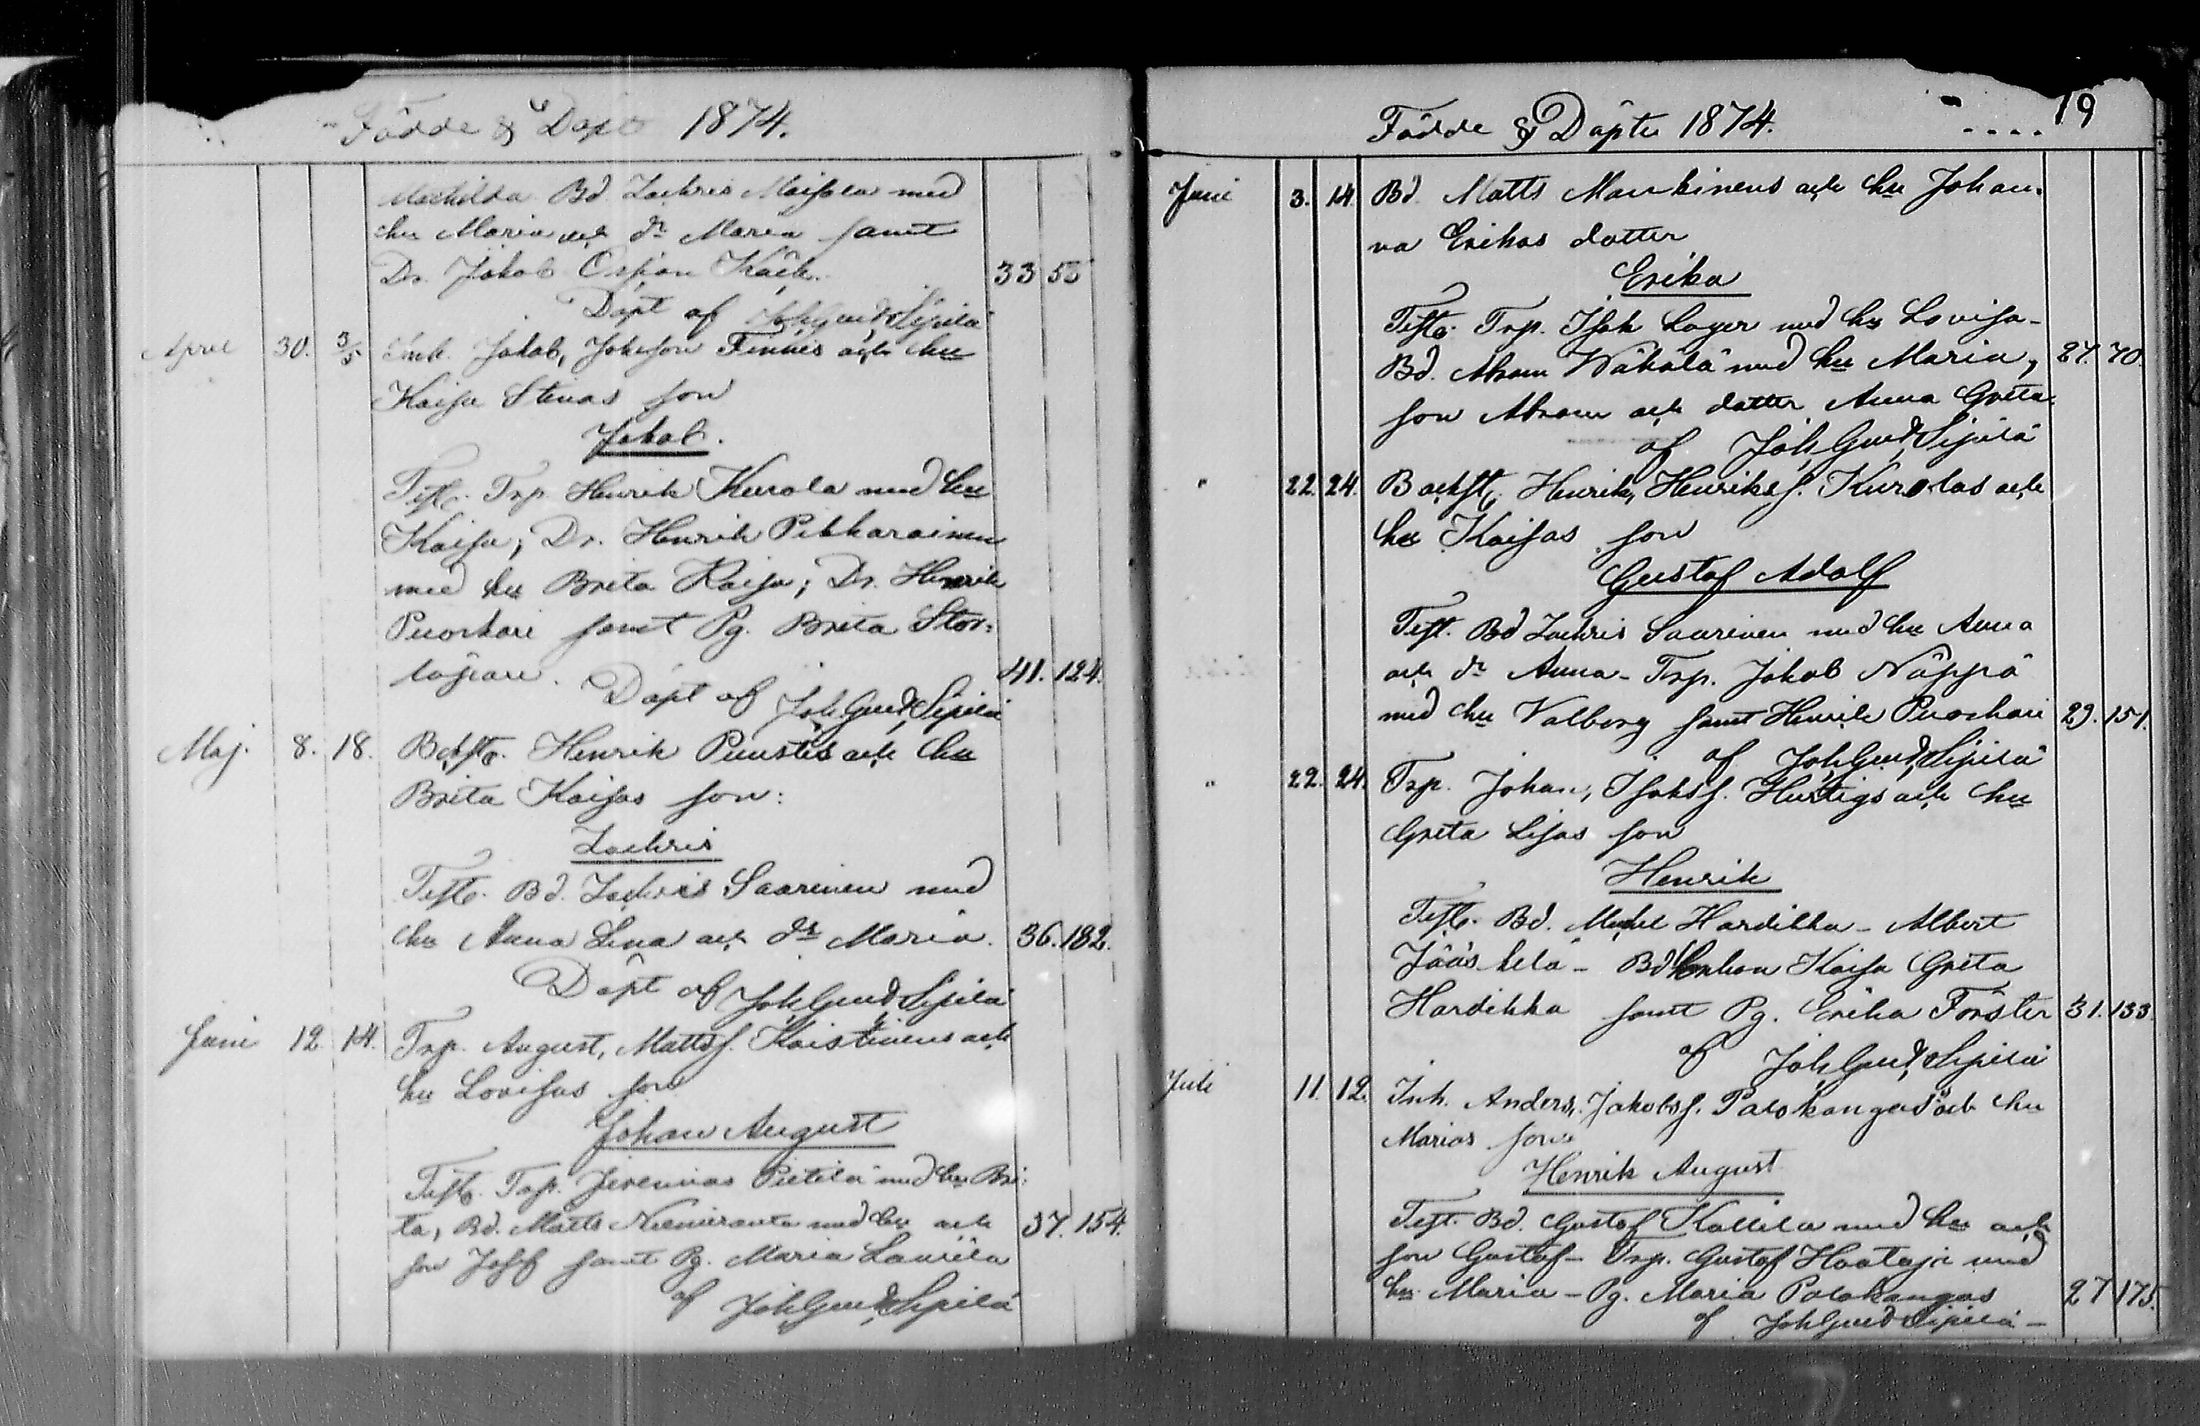 Födde & Döpte 1874.
Mathilda Bd. Zachris Maijala med
hu Maria och dr Maria samt
Dr. Jakob Käck.
33 50
Döpt af Joh Gust Sipilä
April 30. 3/5 Inh. Jakob, Johnsson Finnes och hu
Kaisa Stinas son
Jakob.
Test. Trp. Henrik Kurola med hu
Kaisa; Dr. Henrik Pikkarainen
med hu Brita Kaisa; Dr. Henrik
Puoskari samt Pg. Brita Stor-
41. 124.
Döpt af Joh Gust Sipilä
Maj. 8. 18. Bckst. Henrik Puustis och hu
Brita Kaisas son:
Zachris
Test. Bd. Zachris Saarinen med
hu Anna Lena och dr Maria. 36. 182.
Döpt af Joh Gust Sipilä
Juni 12 14. Trp. August, Mattss. Koistinens och
hu Lovisas son
Johan August
Test. Trp. Jeremias Pietilä med hu Bri-
ta, Bd. Matts Niemiranta med hu och 37. 154.
son Josef samt Pg. Maria Laurila
af Joh Gust Sipilä
Födde & Döpte 1874. 19
Juni 3. 14. Bd. Matts Mankinens och hu Johan-
na Erikas dotter
Erika
Test. Trp. Isak Lager med hu Lovisa -
Bd. Abram Wähälä med hu Maria, 27. 70.
son Abram och dotter Anna Greta.
af Joh Gust Sipilä
" 22. 24. Backst. Henrik, Henrikss. Kurolas och
hu Kaisas son
Gustaf Adolf
Test. Bd Zachris Saarinen med hu Anna
och dr Anna - Trp. Jakob Näppä
med hu Valborg samt Henrik Puoskari 29. 151.
af Joh Gust Sipilä
" 22. 24. Trp. Johan, Isakss. Hurtigs och hu
Greta Lisas son
Henrik
Test. Bd. Mickel Hardikka - Albert
Jääskelä - Bd Kaisa Greta
Hardikka samt Pg. Erika Förster 31. 133.
af Joh Gust Sipilä
Juli 11. 12. Inh. Anders, Jakobss. Palokangas och hu
Marias son
Henrik August
Test. Bd. Gustaf Kallila med hu och
son Gustaf - Trp. Gustaf Haataja med
hu Maria - Pg. Maria Palokangas 27 175.
af Joh Gust Sipilä -